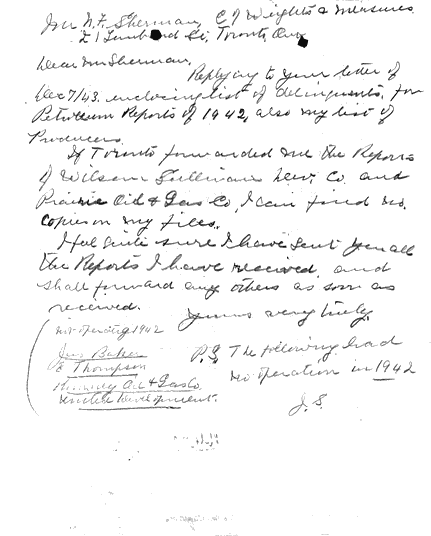 N. F. Sherman, C/ Weights & Measures
21 Lombard St, Toronto, Ont
Dear Mr Sherman,
Replying to your letter of
Dec 7/43. enclosing list of delinquents, for
Petroleum Reports of 1942, also my list of
Producers.
If Toronto forwarded me the Reports
of Wilson Sullivan Dev. Co and
Prairie Oil & Gas Co, I can find no
copies on my files.
I feel quite sure I have sent you all
the Reports I have received, and
shall forward any others as soon as
received. Yours very truly,
not operating 1942
Jas Baker
E Thompson
Oil & Gas Co
United Development.
P.S. The following had
no operation in 1942
J. S.